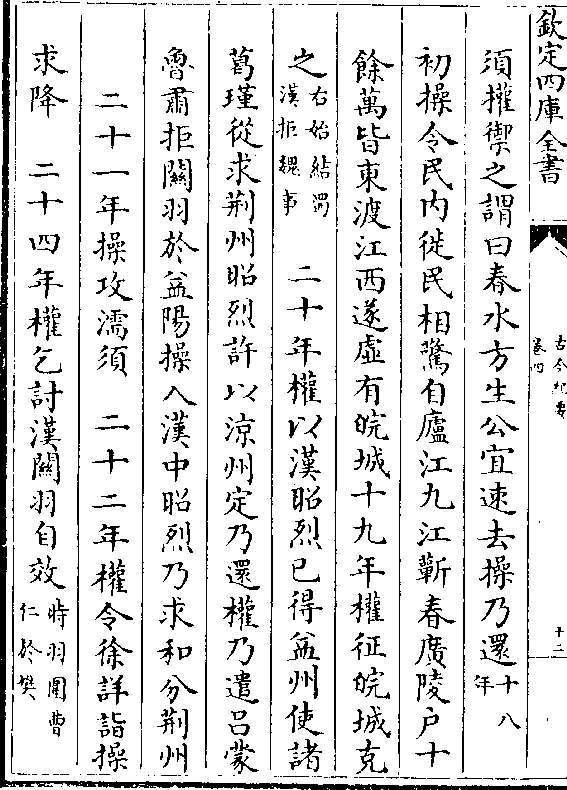 欽定四庫全書
古今紀要
卷四
十二
須權禦之謂曰春水方生公宜速去操乃還十八年
初操令民內徙民相驚自廬江九江蘄春廣陵戶十
餘萬皆東渡江西遂虛有皖城十九年權征皖城克
之右始結漢拒魏事 二十年權以漢昭烈已得益州使諸
葛瑾從求荊州昭烈許以涼州定乃還權乃遣呂蒙
魯肅拒關羽於益陽操入漢中昭烈乃求和分荊州
二十一年操攻濡須 二十二年權令徐詳詣操
求降 二十四年權乞討漢關羽自效時羽圍曹仁於樊